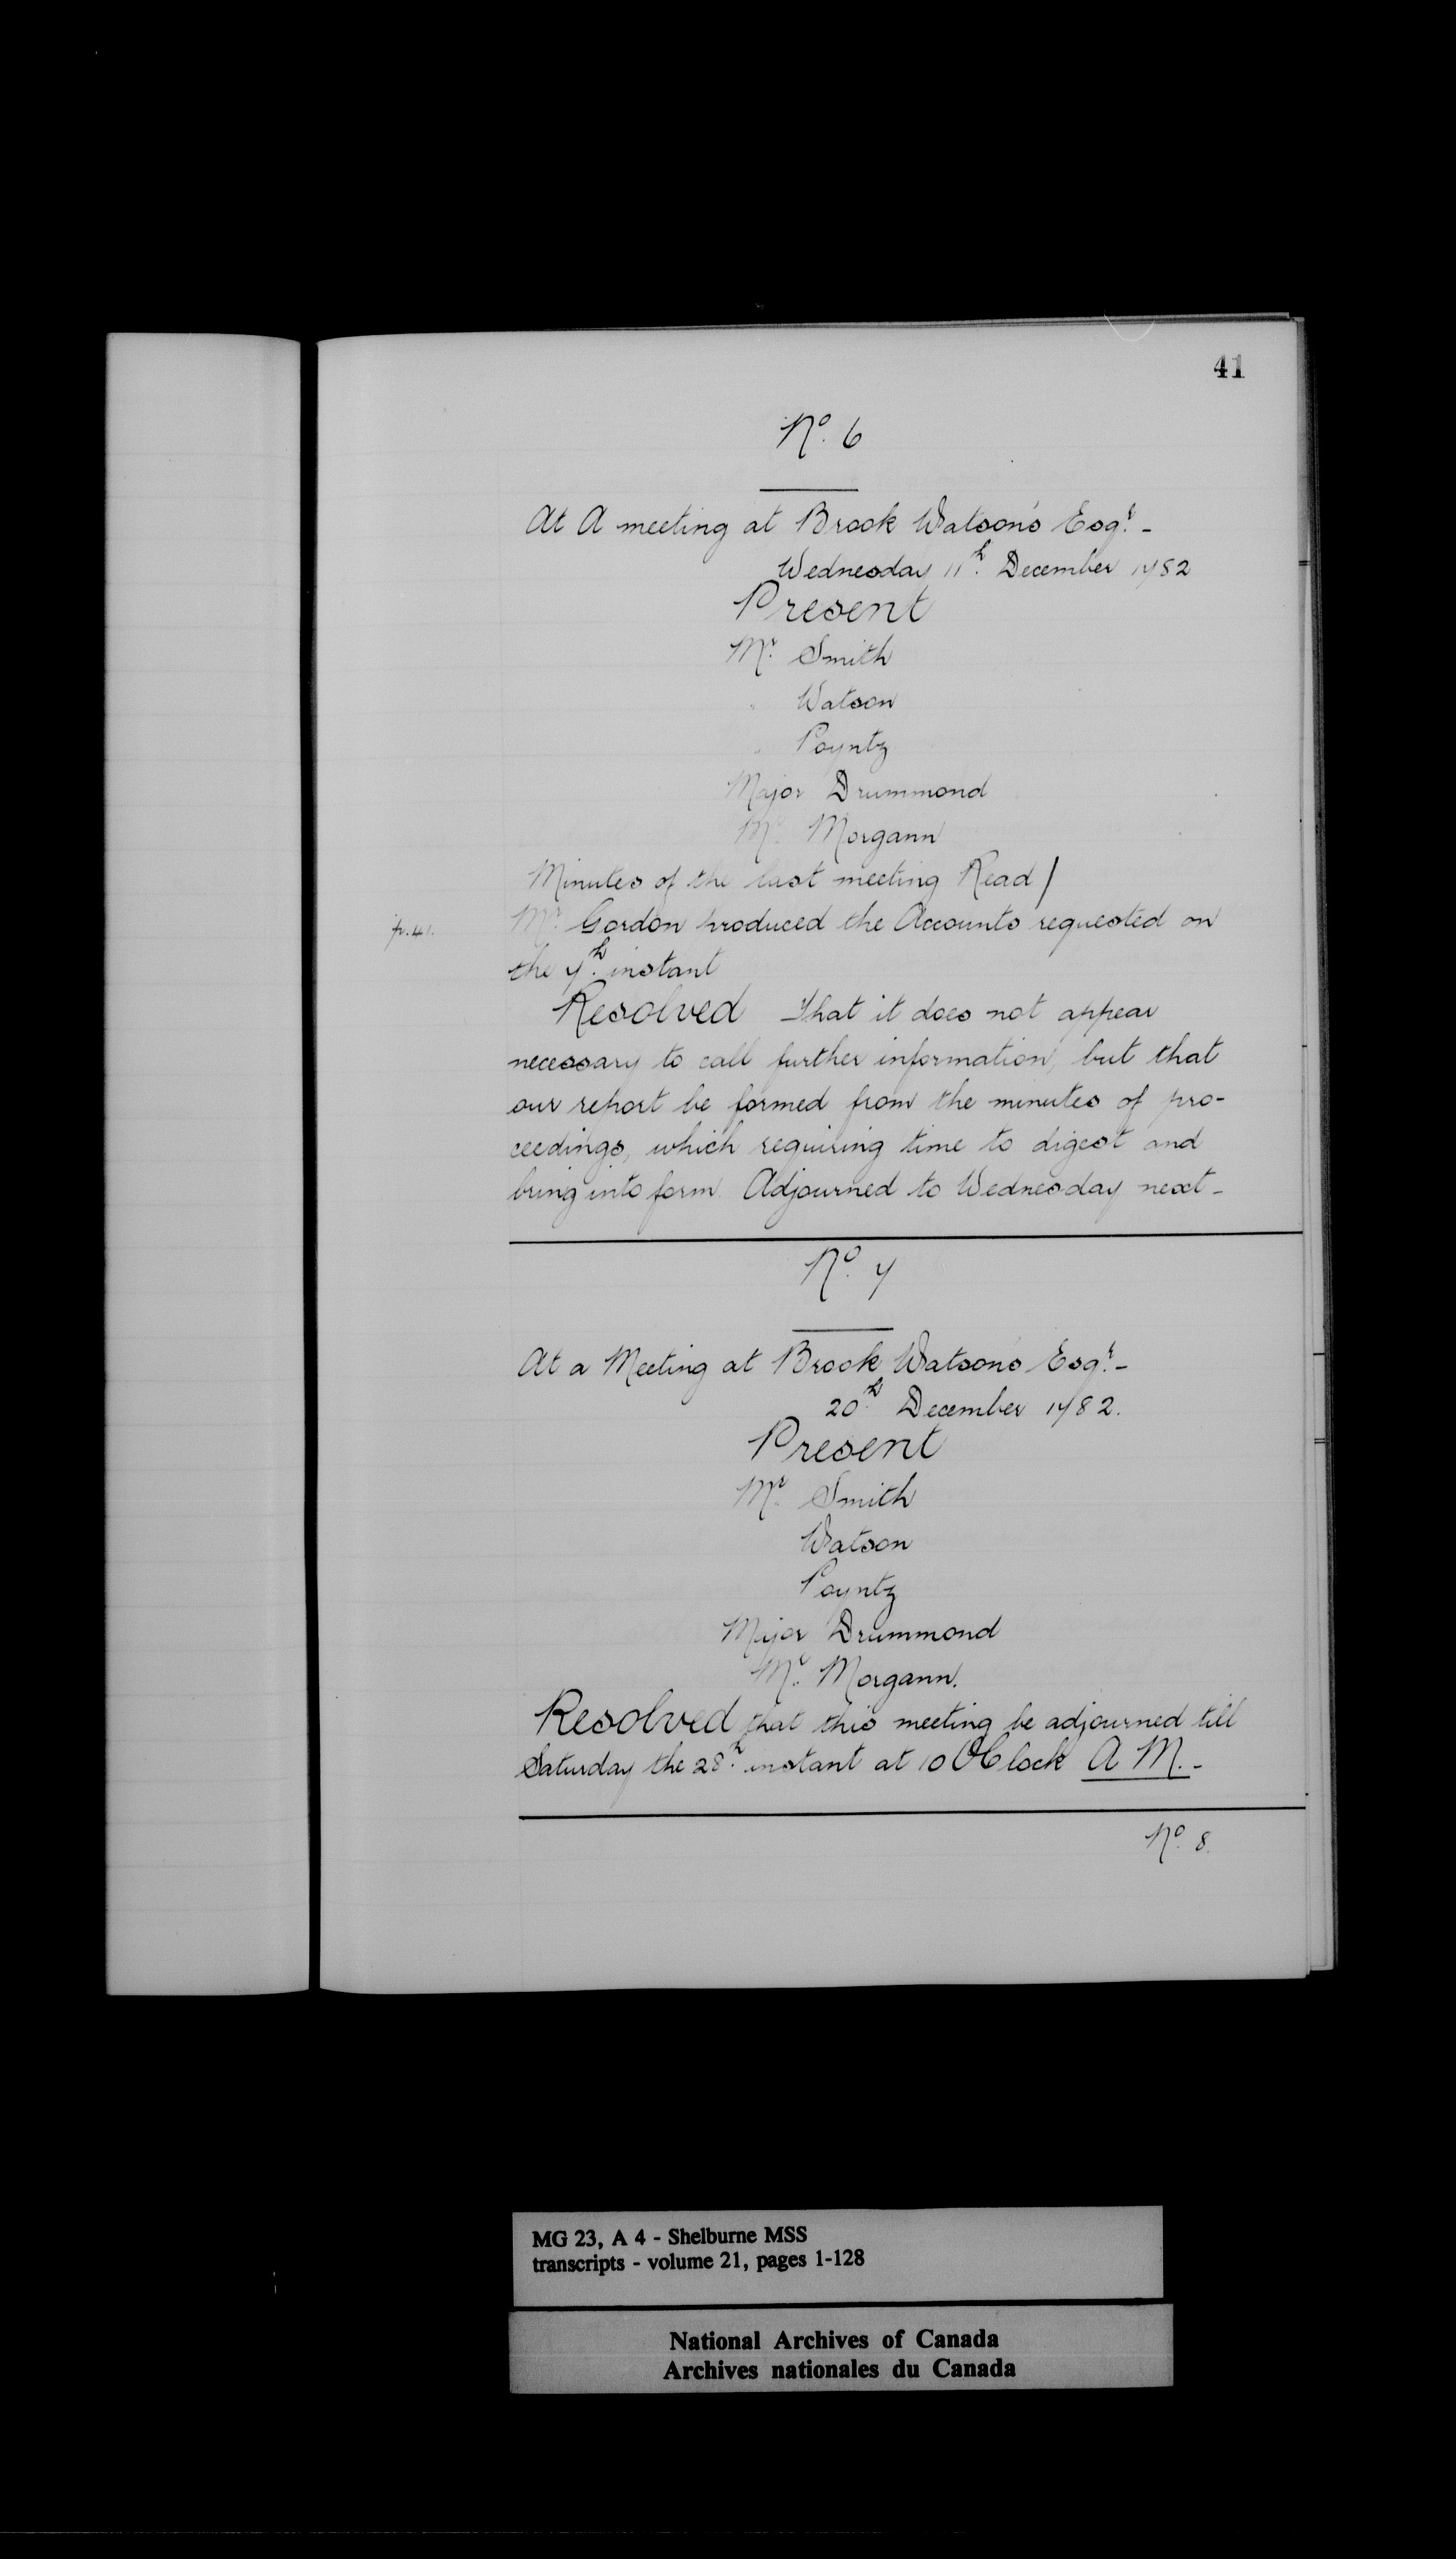 41
No. 6
At A meeting at Brook Watson's Esqr. -
Wednesday 11h. December 1782
Present
Mr. Smith
" Watson
" Poyntz
Major Drummond
Mr. Morgann
Minutes of the last meeting Read /
p. 41.
Mr. Gordon produced the Accounts requested on
the 7h. instant
Resolved That it does not appear
necessary to call further information, but that
our report be formed from the minutes of pro-
ceedings, which requiring time to digest and
bring into form. Adjourned to Wednesday next -
No. 7
At a Meeting at Brook Watson's Esqr. -
20h. December 1782.
Present
Mr. Smith
Watson
Poyntz
Major Drummond
Mr. Morgann.
Resolved that this meeting be adjourned till
Saturday the 28h. instant at 10 O'Clock A M. -
No. 8.
MG 23, A 4 - Shelburne MSS
transcripts - volume 21, pages 1-128
National Archives of Canada
Archives nationales du Canada